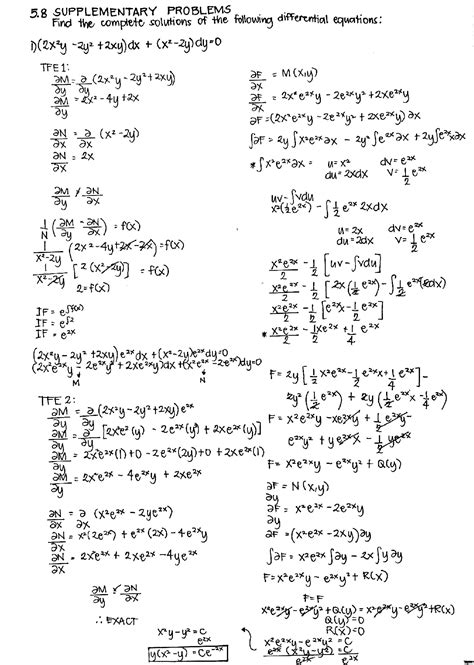 5.8 SUPPLEMENTARY PROBLEMS
Find the complete solutions of the following differential equations:
1) (2x²y - 2y² + 2xy)dx + (x² - 2y)dy = 0
TFE 1:
∂M/∂y = ∂/∂y (2x²y - 2y² + 2xy)
∂M/∂y = 2x² - 4y + 2x
∂N/∂x = ∂/∂x (x² - 2y)
∂N/∂x = 2x
∂M/∂y ≠ ∂N/∂x
1/N (∂M/∂y - ∂N/∂x) = f(x)
1/(x² - 2y) (2x² - 4y + 2x - 2x) = f(x)
1/(x² - 2y) [2(x² - 2y)] = f(x)
2 = f(x)
IF = e^∫f(x)
IF = e^∫2
IF = e^2x
(2x²y - 2y² + 2xy)e^2x dx + (x² - 2y)e^2x dy = 0
(2x²e^2x y - 2e^2x y² + 2xe^2x y)dx + (x²e^2x - 2e^2x y)dy = 0
M N
TFE 2:
∂M/∂y = ∂/∂y (2x²y - 2y² + 2xy)e^2x
∂M/∂y = ∂/∂y [2x²e^2x (y) - 2e^2x (y²) + 2xe^2x (y)]
∂M/∂y = 2x²e^2x (1) + 0 - 2e^2x (2y) + 0 + 2xe^2x (1)
∂M/∂y = 2x²e^2x - 4e^2x y + 2xe^2x
∂N/∂x = ∂/∂x (x²e^2x - 2ye^2x)
∂N/∂x = x²(2e^2x) + e^2x (2x) - 4e^2x y
∂N/∂x = 2x²e^2x + 2xe^2x - 4ye^2x
∂M/∂y = ∂N/∂x
∴ EXACT
∂F/∂x = M(x,y)
∂F/∂x = 2x²e^2x y - 2e^2x y² + 2xe^2x y
∂F = (2x²e^2x y - 2e^2x y² + 2xe^2x y)∂x
∫∂F = 2y∫x²e^2x ∂x - 2y²∫e^2x ∂x + 2y∫e^2x x∂x
* ∫x²e^2x ∂x = u = x² dv = e^2x
du = 2xdx v = 1/2 e^2x
uv - ∫vdu
x²(1/2 e^2x) - ∫1/2 e^2x 2xdx
u = 2x dv = e^2x
du = 2dx v = 1/2 e^2x
x²e^2x/2 - 1/2 [uv - ∫vdu]
x²e^2x/2 - 1/2 [2x(1/2 e^2x) - ∫1/2 e^2x (2dx)]
x²e^2x/2 - 1/2 [e^2x x - 1/2 e^2x]
* x²e^2x/2 - 1/2 xe^2x + 1/4 e^2x
F = 2y[1/2 x²e^2x - 1/2 e^2x x + 1/4 e^2x] -
2y²(1/2 e^2x) + 2y(1/2 e^2x x - 1/4 e^2x)
F = x²e^2x y - xe^2x y + 1/2 e^2x y -
e^2x y² + ye^2x x - 1/2 ye^2x
F = x²e^2x y - e^2x y² + Q(y)
∂F/∂y = N(x,y)
∂F/∂y = x²e^2x - 2e^2x y
∂F = (x²e^2x - 2xy)∂y
∫∂F = x²e^2x ∫∂y - 2x∫y∂y
F = x²e^2x y - e^2x y² + R(x)
F = F
x²e^2x y - e^2x y² + Q(y) = x²e^2x y - e^2x y² + R(x)
Q(y) = 0
R(x) = 0
x²e^2x y - e^2x y² = C
e^2x (x²y - y²)/e^2x = C/e^2x
x²y - y² = C/e^2x
y(x² - y) = Ce^-2x